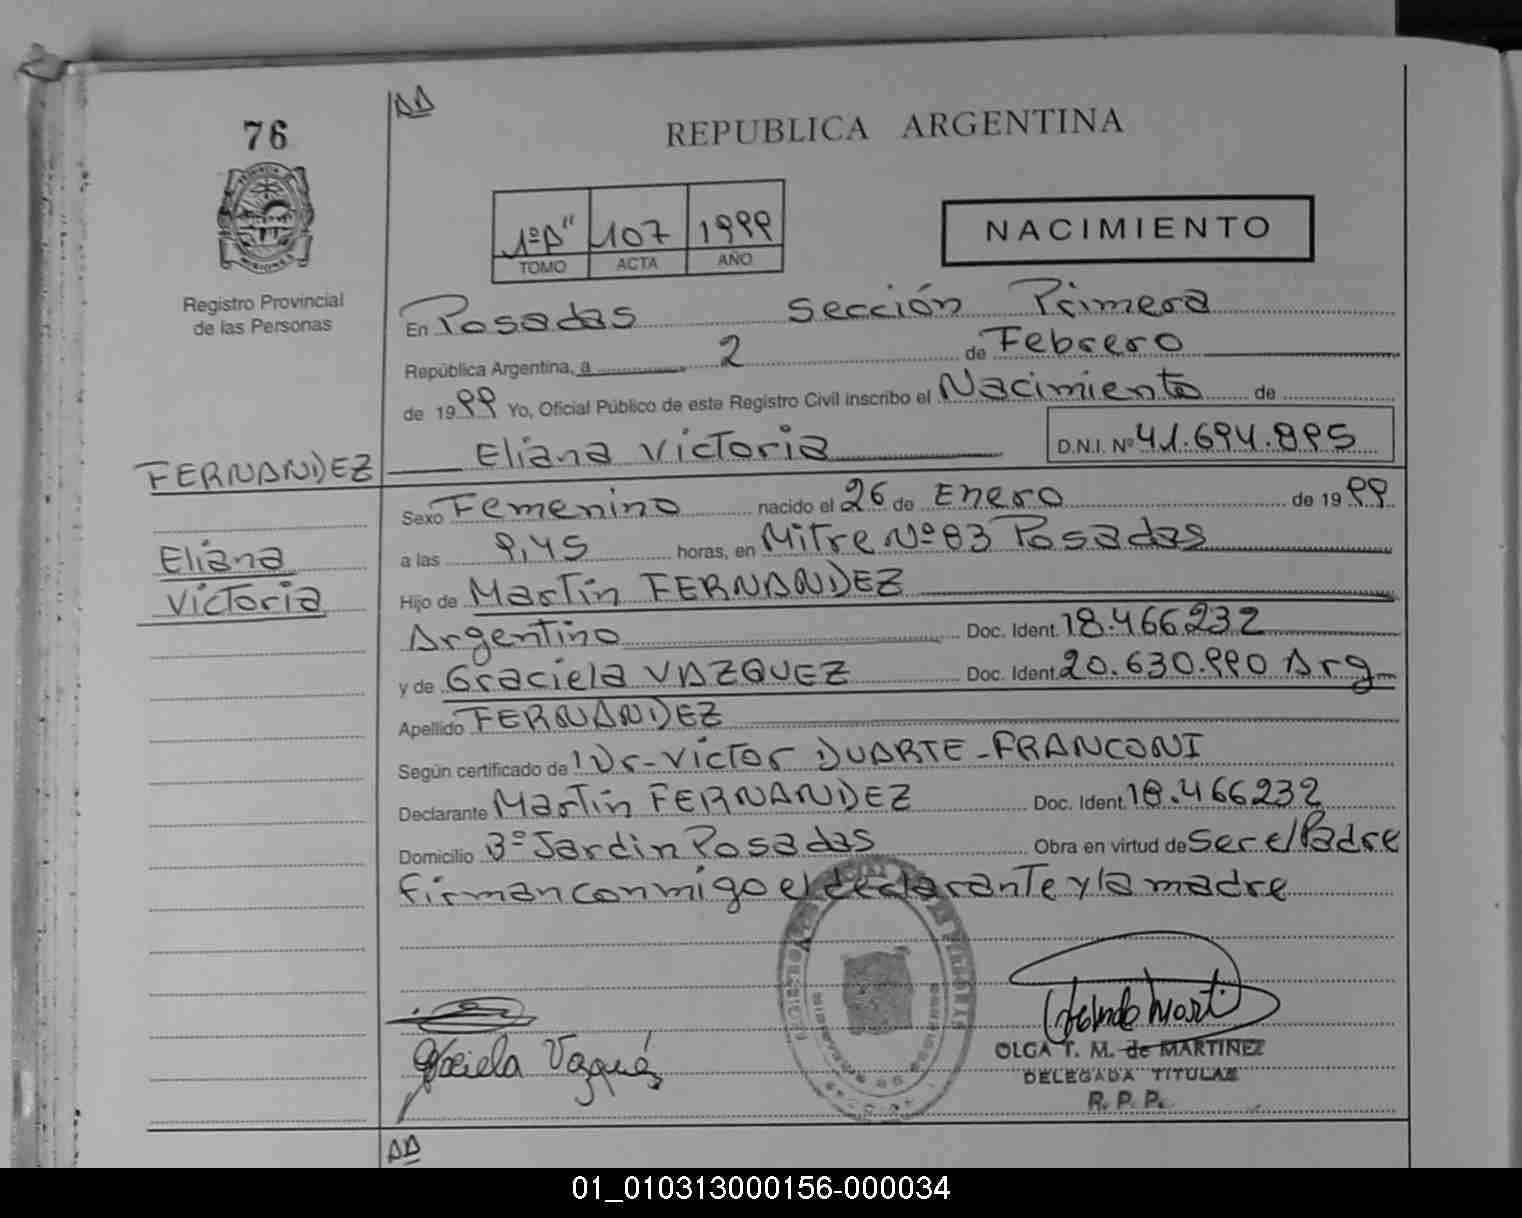 76
REPUBLICA ARGENTINA
1º"A" 107 1999
TOMO ACTA AÑO
NACIMIENTO
Registro Provincial
de las Personas
En Posadas Sección Primera
República Argentina, a 2 de Febrero
de 1999 Yo, Oficial Público de este Registro Civil inscribo el Nacimiento de
Eliana Victoria D.N.I. Nº 41.694.895
FERNANDEZ
Eliana
Victoria
Sexo Femenino nacido el 26 de Enero de 1999
a las 9,45 horas, en Mitre Nº 83 Posadas
Hijo de Martín FERNANDEZ
Argentino Doc. Ident. 18.466.232
y de Graciela VAZQUEZ Doc. Ident. 20.630.990 Arg
Apellido FERNANDEZ
Según certificado de Dr. Victor DUARTE-FRANCONI
Declarante Martín FERNANDEZ Doc. Ident. 18.466232
Domicilio Bº Jardin Posadas Obra en virtud de Ser el Padre
firman conmigo el declarante y la madre
Graciela Vazquéz
OLGA T. M. de MARTINEZ
DELEGADA TITULAR
R. P. P.
01_010313000156-000034